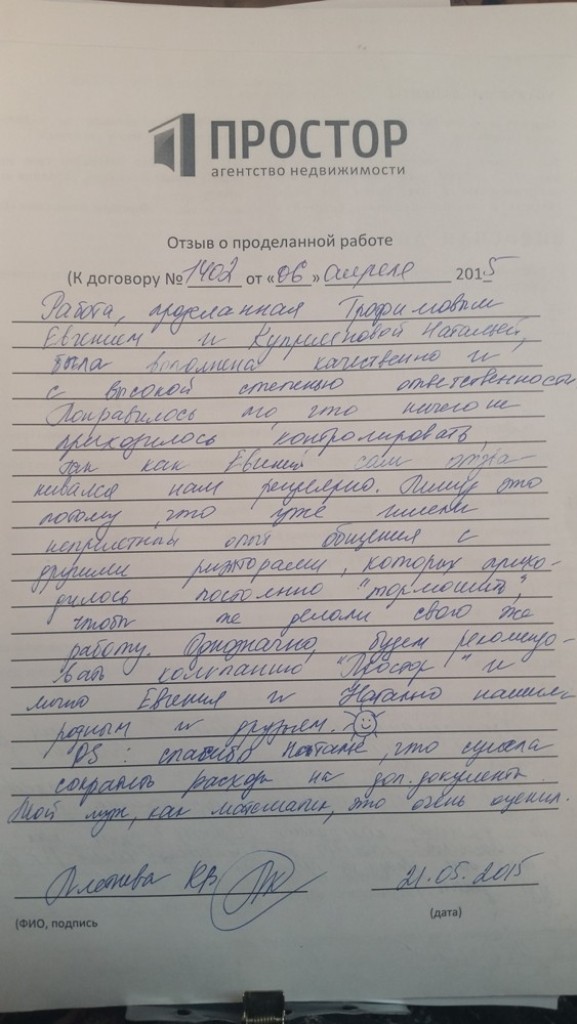 ПРОСТОР
агентство недвижимости
Отзыв о проделанной работе
(К договору № 1402 от «06» апреля 2015
Работа, проделанная Трофимовым
Евгением и Натальей,
была выполнена качественно и
с высокой степенью ответственности
Понравилось то что ничего не
приходилось контролировать
так как Евгений сам отзва
нивался нам регулярно. Пишу это
потому, что уже имели
неприятный опыт общения с
другими риэлторами, которых прихо-
дилось постоянно "тормошить",
чтобы же делали свою же
работу. Однозначно, будем рекомендо-
вать компанию "Простор" и
лично Евгения и Наталью нашим
родным и друзьям.
PS: спасибо Наталье, что сумела
сократить расходы на доп. документы.
Мой муж, как математик, это очень оценил.
КВ
21.05.2015
(ФИО, подпись
(дата)